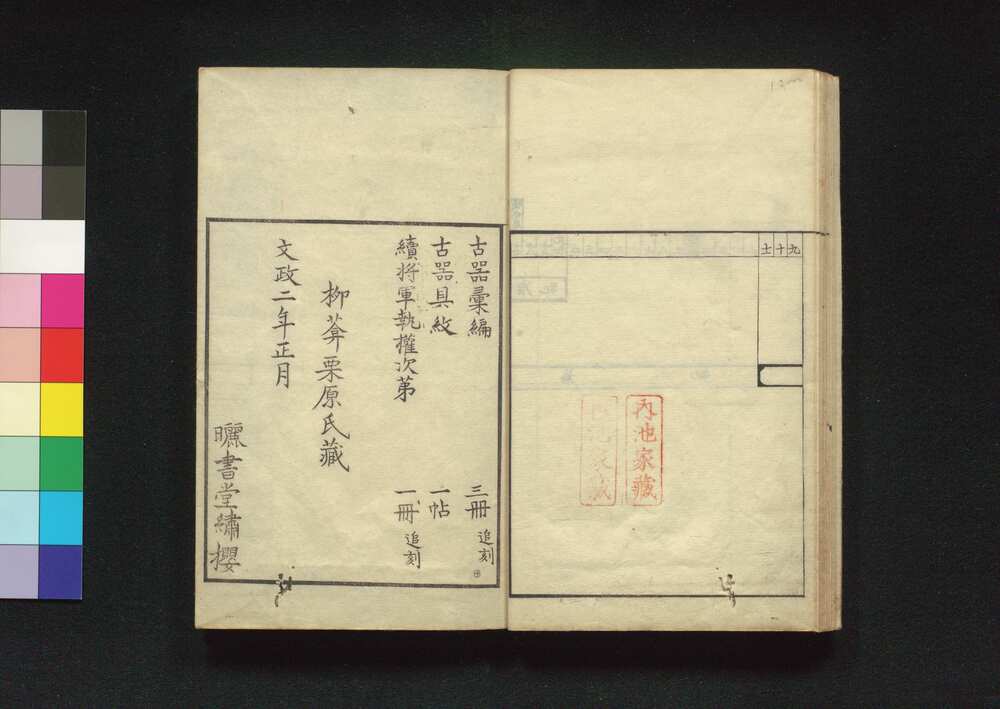 九
十
士
內池家藏
內池家藏
古器彙編 三冊 追刻
古器具紋 一帖
續將軍執權次第 一冊 追刻
柳葊栗原氏藏
文政二年正月
曬書堂繡櫻